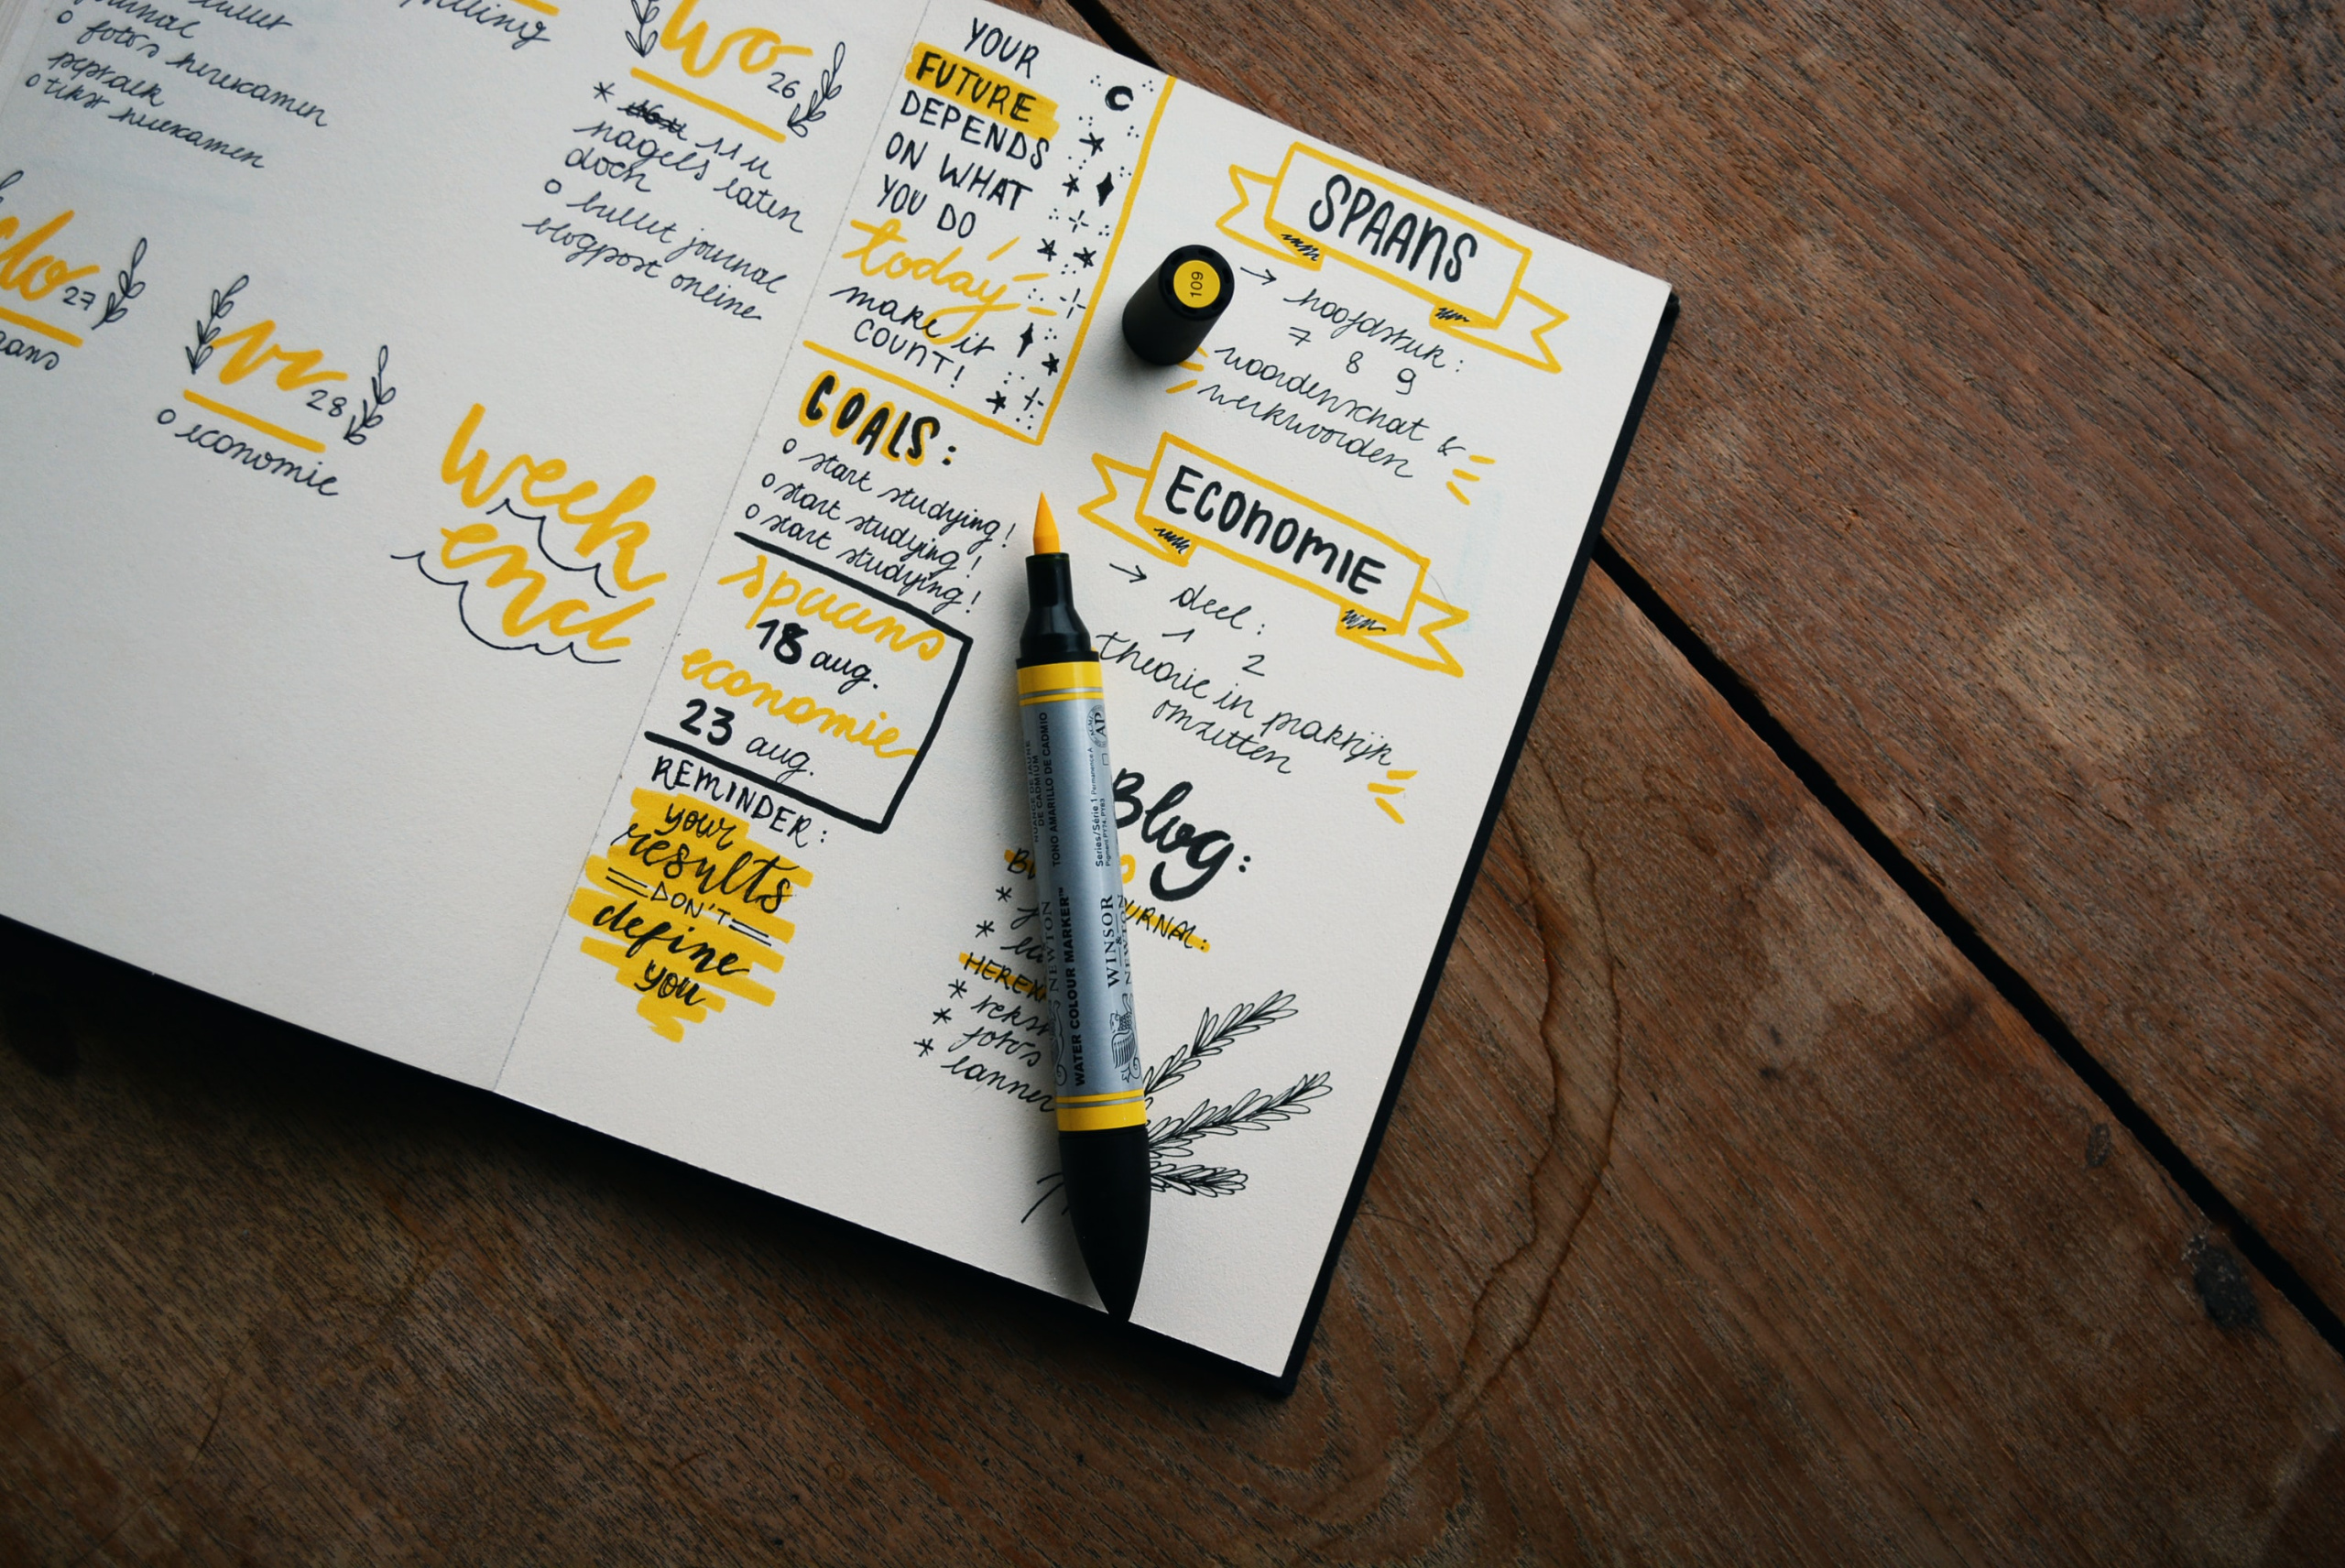 journal
o foto's herexamen
o tekst herexamen
wo 26
* 11 u
nagels laten
doen
o bullet journal
blogpost online
do 27
vr 28
o economie
week
end
YOUR
FUTURE
DEPENDS
ON WHAT
YOU DO
today
make it
COUNT!
GOALS:
o start studying!
o start studying!
o start studying!
spaans
18 aug.
economie
23 aug.
REMINDER:
your
results
DON'T
define
you
SPAANS
→ hoofdstuk:
7 8 9
woordenschat &
werkwoorden
ECONOMIE
→ deel:
1 2
theorie in praktijk
omzetten
Blog:
URNAL:
HEREX
* tekst
* foto's
* banner
109
NUANCE DE JAUNE
DE CADMIUM
TONO AMARILLO DE CADMIO
Series/Série 1 Permanence A
AP
WATER COLOUR MARKER™
WINSOR
& NEWTON